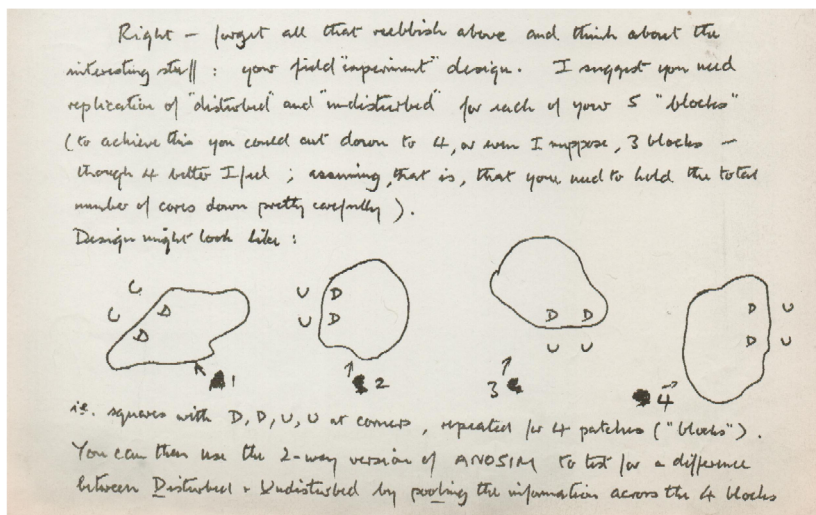 Right - forget all that rubbish above and think about the
interesting stuff : your field "experiment" design. I suggest you need
replication of "disturbed" and "undisturbed" for each of your 5 "blocks"
(to achieve this you could cut down to 4, or even I suppose, 3 blocks -
though 4 better I feel ; assuming, that is, that you need to hold the total
number of cores down pretty carefully ).
Design might look like :
U U D D
U U D D
D D U U
D U D U
1 2 3 4
i.e. squares with D, D, U, U at corners, repeated for 4 patches ("blocks").
You can then use the 2-way version of ANOSIM to test for a difference
between Disturbed + Undisturbed by pooling the information across the 4 blocks